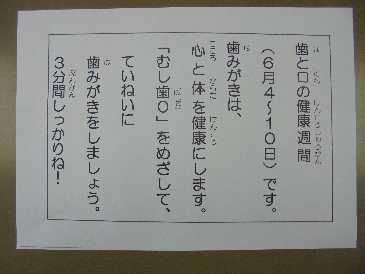 歯と口の健康週間
（6月4～10日）です。
歯みがきは、
心と体を健康にします。
「むし歯0」をめざして、
ていねいに
歯みがきをしましょう。
3分間しっかりね！